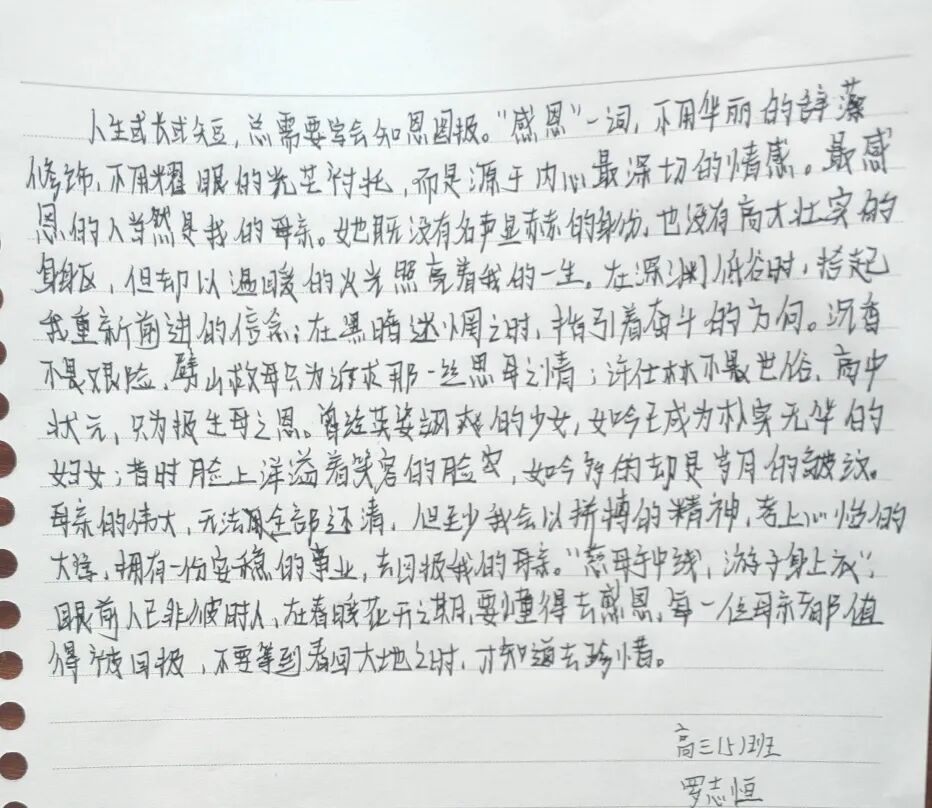 人生或长或短，总需要学会知恩图报。“感恩”一词，不用华丽的辞藻
修饰，不用耀眼的光芒衬托，而是源于内心最深切的情感。最感
恩的人当然是我的母亲。她既没有名声显赫的身份，也没有高大壮实的
身躯，但却以温暖的火光照亮着我的一生。在深渊低谷时，拾起
我重新前进的信念；在黑暗迷惘之时，指引着奋斗的方向。沉香
不畏艰险，劈山救母只为渴求那一丝思母之情；许仕林不畏世俗，高中
状元，只为报生母之恩。曾经英姿飒爽的少女，如今已成为朴实无华的
妇女；昔时脸上洋溢着笑容的脸，如今多的却是岁月的皱纹。
母亲的伟大，无法用全部还清，但至少我会以拼搏的精神，考上心怡的
大学，拥有一份安稳的事业，去回报我的母亲。“慈母手中线，游子身上衣”，
眼前人已非彼时人，在春暖花开之期，要懂得去感恩，每一位母亲都值
得被回报，不要等到春回大地之时，才知道去珍惜。
高三(5)班
罗志恒